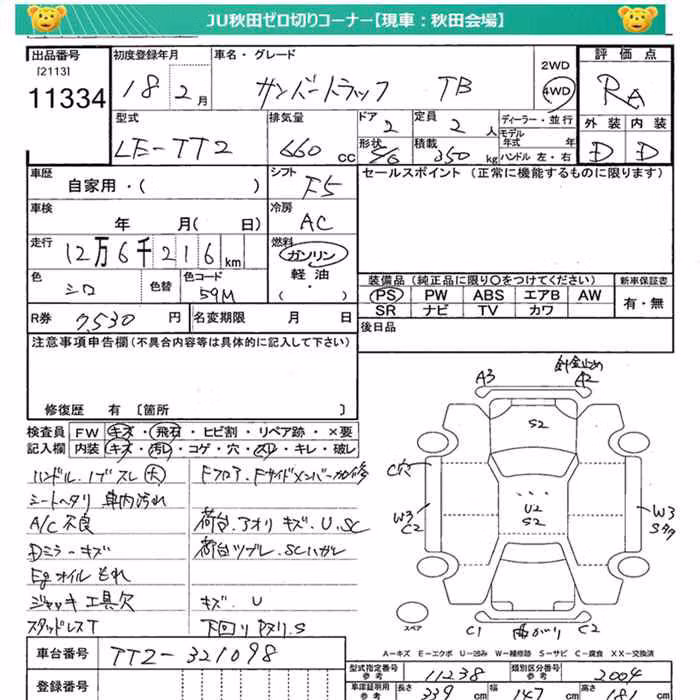 JU秋田ゼロ切りコーナー【現車：秋田会場】
出品番号 初度登録年月 車名・グレード 2WD 評価点
[2113]
11334 18 2月 サンバートラック TB 4WD RA
型式 排気量 ドア 定員 ディーラー・並行 外装 内装
LE-TT2 660 cc 2 2 人 モデル年式 年 D D
形状 積載 350 kg ハンドル 左・右
車歴 シフト セールスポイント（正常に機能するものに限ります）
自家用・（ ） F5
車検 冷房
年 月（ 日） AC
走行 燃料
12万6千216km ガソリン
軽油
色 色替 色コード （・ ）
シロ 59M
装備品（純正品に限り○をつけてください） 新車保証書
PS PW ABS エアB AW 有・無
SR ナビ TV カワ
R券 7,530 円 名変期限 月 日 後日品
注意事項申告欄（不具合内容等は具体的に記入して下さい）
修復歴 有 〔箇所 〕
検査員 FW キズ・飛石・ヒビ割・リペア跡・×要
記入欄 内装 キズ・汚レ・コゲ・穴・スレ・キレ・破レ
ハンドル、ノブスレ(大) Fフロア、Fサイドメンバー
シートヘタリ 車内汚れ
A/C不良 荷台、アオリ キズ、U、SC
Dミラーキズ 荷台ツブレ、SCハガレ
Egオイルもれ
ジャッキ工具欠 キズ、U
スタッドレスT 下回りサビ、S
A3 針金止め A2
S2
C穴
W3 C2
U2 S2
W3
スペア C1 曲がり C2
A－キズ E－エクボ U－凹み W－補修跡 S－サビ C－腐食 XX－交換済
車台番号 TT2-321098
型式指定番号 参考 11238 類別区分番号 参考 2004
登録番号
車庫証明用 参考 長さ 339 cm 幅 147 cm 高さ 181 cm